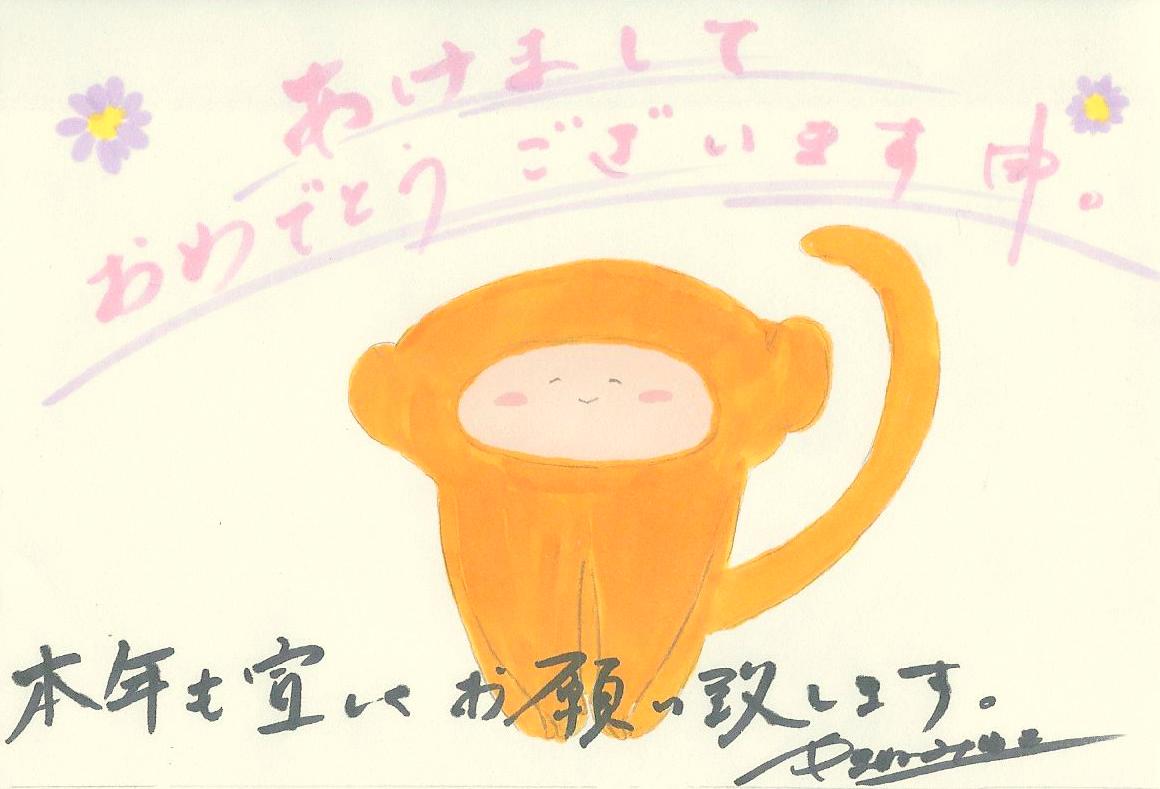 あけまして
おめでとうございます申。
本年も宜しくお願い致します。